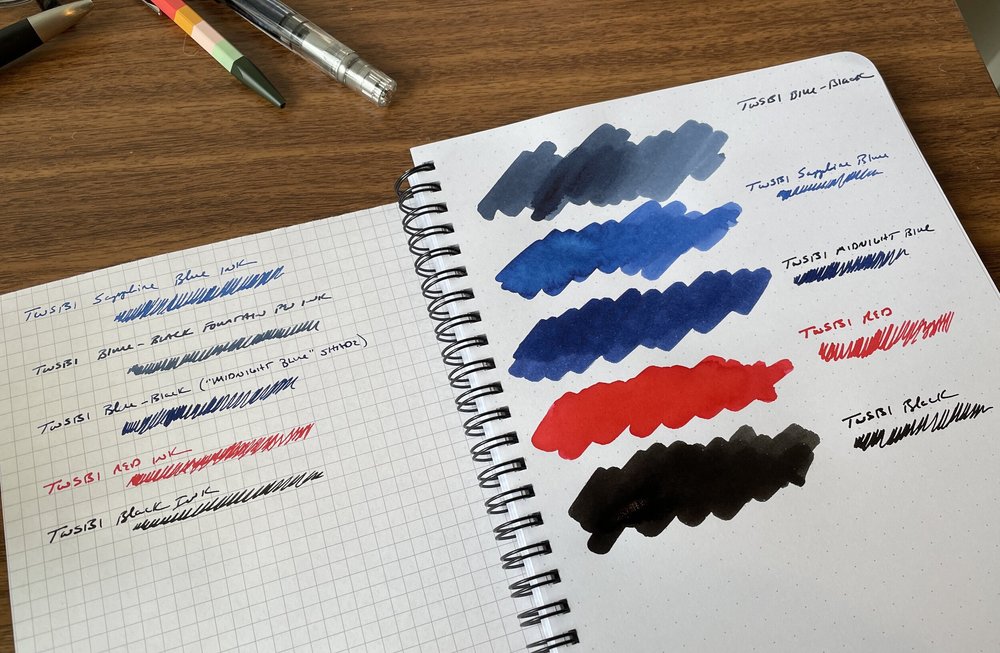 TWSBI Sapphire Blue INK
TWSBI BLUE-BLACK FOUNTAIN PEN INK
TWSBI Blue-Black ("MIDNIGHT BLUE" SHADE)
TWSBI RED INK
TWSBI Black INK
TWSBI Blue-Black
TWSBI Sapphire Blue
TWSBI MIDNIGHT BLUE
TWSBI RED
TWSBI Black